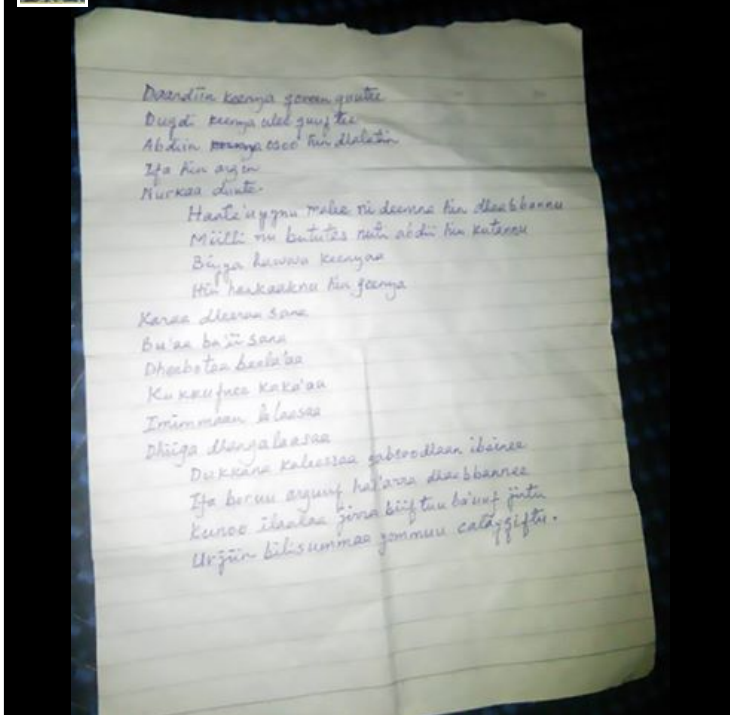 Daandiin keenya gorren guutee
Dugdi keenya ulee guuf tee
Abdiin keenya osoo hin dhalatin
Ifa hin argin
Nurkaa duute.
Haate'uyynu malee ni deemna hin dhaabbannu
Miilli nu bututes nuti abdii hin kutannu
Biyya hawwa keenyaa
Hin hankaaknu hin geenya
Karaa dheeraa sana
Bu'aa ba'ii sana
Dheebotaa beela'aa
Kukkufnee kaka'aa
Imimmaan lolaasaa
Dhiiga dhangalaasaa
Dukkana kaleessaa gabroodhaan ibsinee
Ifa boruu arguuf har'arra dhaabbannee
Kunoo ilaalaa jirra biiftuu ba'uuf jirtu
Urjiin bilisummaa gommuu calaqqiftu.